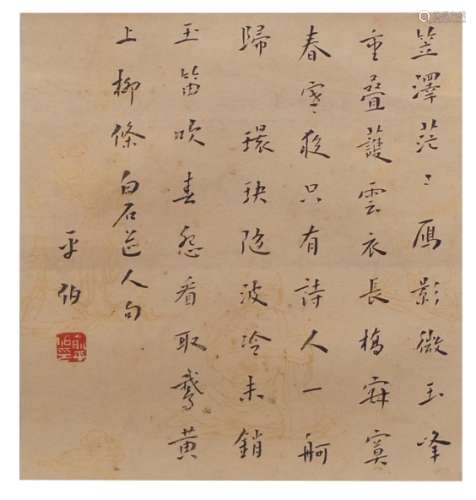 笠澤茫〻鴈影微玉峰
重疊護雲衣長橋寂寞
春寒夜只有詩人一舸
歸 環玦隨波冷未銷
玉笛吹春怨看取鵞黃
上柳條白石道人句
平伯